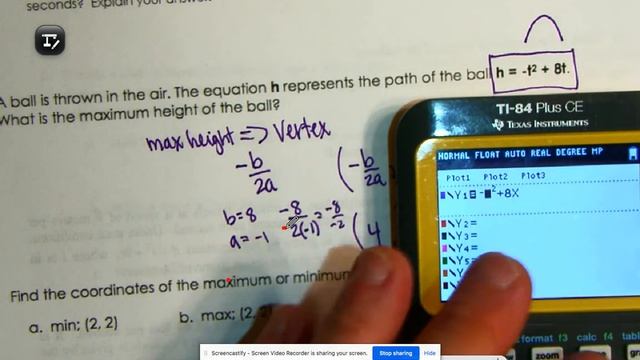 seconds? Explain your
A ball is thrown in the air. The equation h represents the path of the ball h = -t² + 8t.
What is the maximum height of the ball?
max height => Vertex
-b/2a
(-b/2a
b=8
a=-1
-8/2(-1) = -8/-2
(4
Find the coordinates of the maximum or minimum
a. min; (2, 2)
b. max; (2, 2)
TI-84 Plus CE
TEXAS INSTRUMENTS
NORMAL FLOAT AUTO REAL DEGREE MP
Plot1 Plot2 Plot3
\Y1=-■²+8X
\Y2=
\Y3=
\Y4=
\Y5=
format f3 calc f4 table
zoom
Screencastify - Screen Video Recorder is sharing your screen.
Stop sharing
Hide